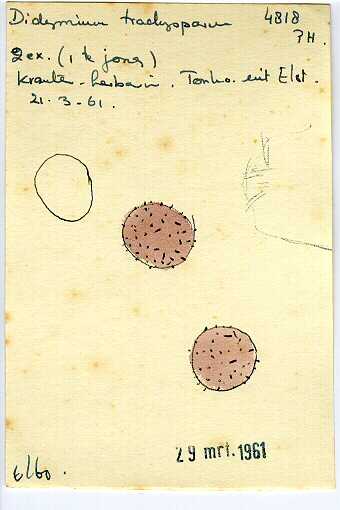 Didymium trachysporum 4818
PH.
2 ex. (1 k jones)
Kruuter-herbarium. Tonho. uit Elst.
21-3-61.
6/60.
29 mrt. 1961